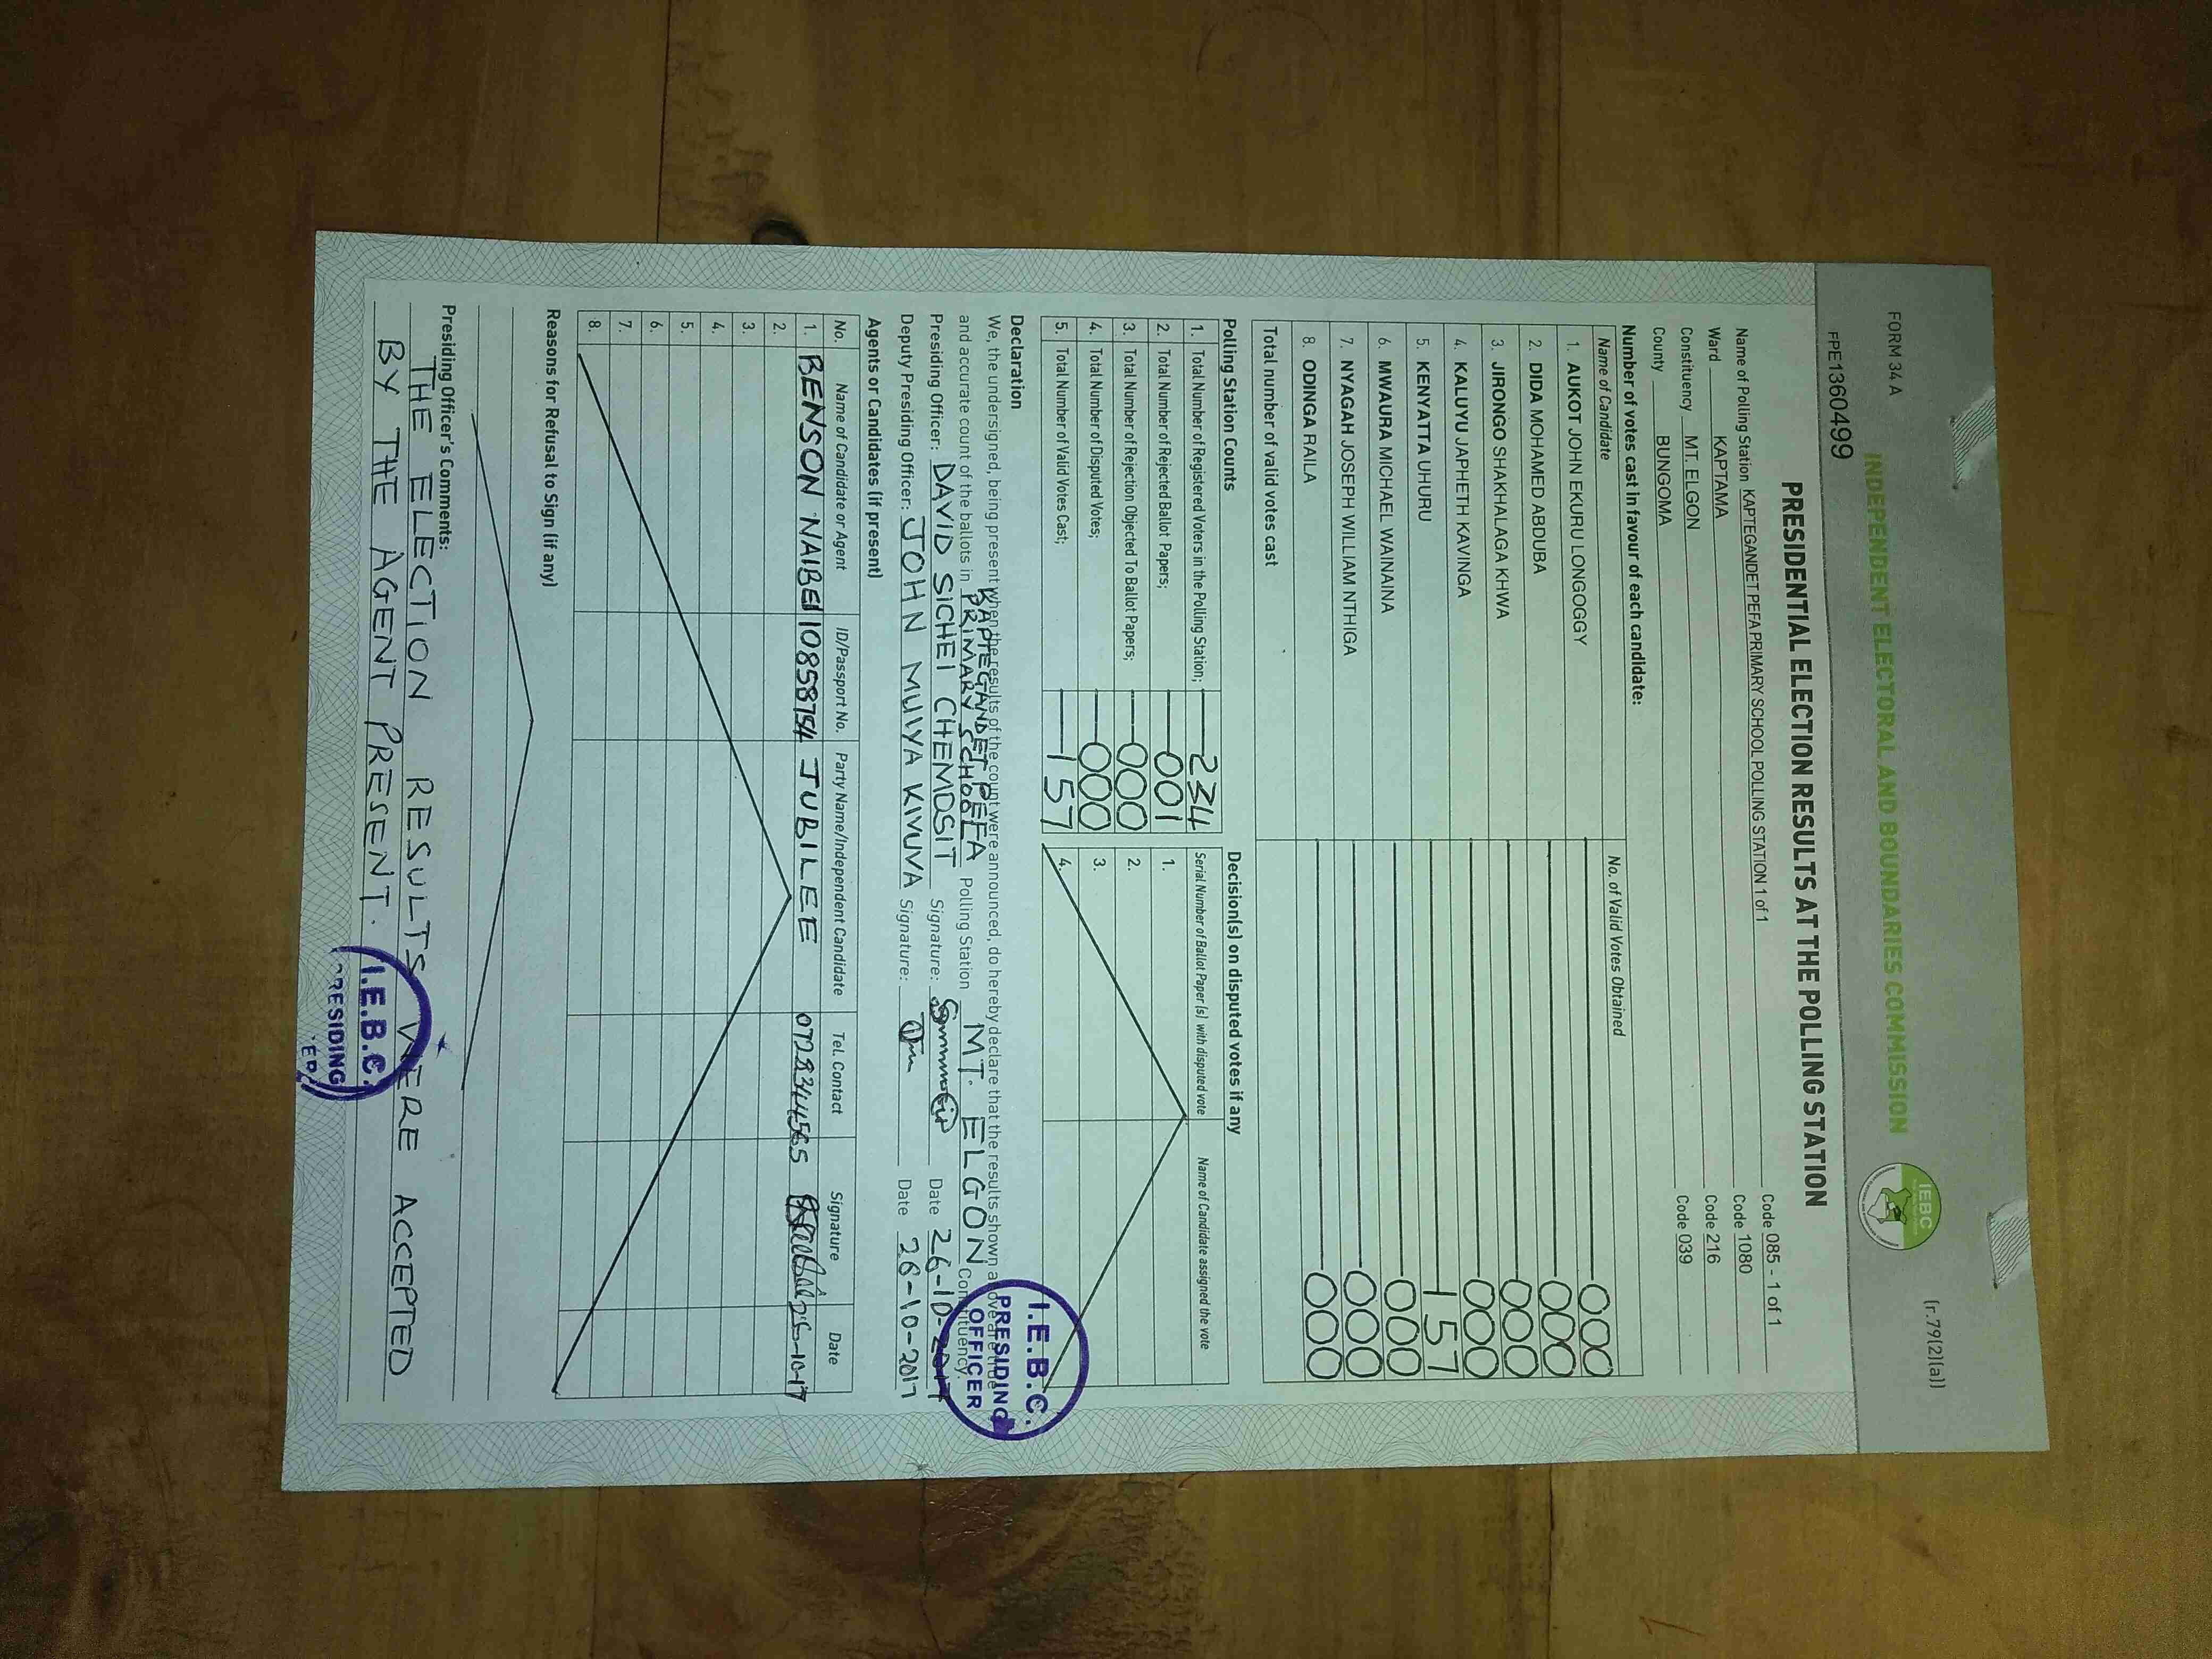 FORM 34 A
(r.79(2)(a))
INDEPENDENT ELECTORAL AND BOUNDARIES COMMISSION
IEBC
FPE1360499
PRESIDENTIAL ELECTION RESULTS AT THE POLLING STATION
Name of Polling Station KAPTEGANDET PEFA PRIMARY SCHOOL POLLING STATION 1 of 1 Code 085 - 1 of 1
Ward KAPTAMA Code 1080
Constituency MT. ELGON Code 216
County BUNGOMA Code 039
Number of votes cast in favour of each candidate:
Name of Candidate No. of Valid Votes Obtained
1. AUKOT JOHN EKURU LONGOGGY 000
2. DIDA MOHAMED ABDUBA 000
3. JIRONGO SHAKHALAGA KHWA 000
4. KALUYU JAPHETH KAVINGA 000
5. KENYATTA UHURU 157
6. MWAURA MICHAEL WAINAINA 000
7. NYAGAH JOSEPH WILLIAM NTHIGA 000
8. ODINGA RAILA 000
Total number of valid votes cast
Polling Station Counts
1. Total Number of Registered Voters in the Polling Station; 234
2. Total Number of Rejected Ballot Papers; 001
3. Total Number of Rejection Objected To Ballot Papers; 000
4. Total Number of Disputed Votes; 000
5. Total Number of Valid Votes Cast; 157
Decision(s) on disputed votes if any
Serial Number of Ballot Paper(s) with disputed vote Name of Candidate assigned the vote
1.
2.
3.
4.
Declaration
We, the undersigned, being present when the results of the count were announced, do hereby declare that the results shown above are true
and accurate count of the ballots in KAPTEGANDET PEFA PRIMARY SCHOOL Polling Station MT. ELGON Constituency.
Presiding Officer: DAVID SICHEI CHEMOSIT Signature: Date 26-10-2017
Deputy Presiding Officer: JOHN MUIYA KIVUVA Signature: Date 26-10-2017
I.E.B.C.
PRESIDING
OFFICER
Agents or Candidates (if present)
No. Name of Candidate or Agent ID/Passport No. Party Name/Independent Candidate Tel. Contact Signature Date
1. BENSON NAIBEI 10858754 JUBILEE 0728344565 26-10-17
2.
3.
4.
5.
6.
7.
8.
Reasons for Refusal to Sign (if any)
Presiding Officer's Comments:
THE ELECTION RESULTS WERE ACCEPTED
BY THE AGENT PRESENT.
I.E.B.C.
PRESIDING